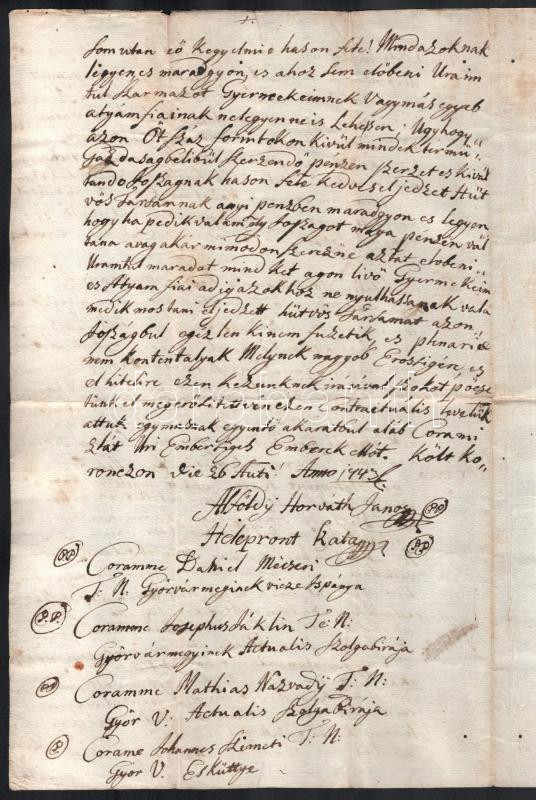 som utan eö Kegyelmie hason féle! Mind azoknak
legyen es maradgyon, es ahoz sem elöbeni Uraim
tul szarmazot Gyermekeimnek Vagy más egyeb
atyámfiainak ne legyen ne is Lehessen; Ugy hogy
azon Öt szaz forintokon kivül mindek termü
Gazdasagbelibül Szerzendö penzen szerzet es kivál
tando Joszagnak hason fele kedvs eljedzet Hüt
vös Társamnak anyi penzben maradgyon es legyen
hogy ha pedik valamely Joszagot maga pénzén vál
tana avagy akar mi modon szerezne aztat elobeni
Uramtul maradat mind ket agon livö Gyermekeim
es Atyamfiai adig azokhoz ne nyulhassanak vala
medik mostani eljedzett hütvös Társamat azon
Joszágbul egezlen ki nem fuzetik, es plenarie
nem kontentalyak Melynek nagyob Erössigére es
el hitelire ezen kezünknek irásaval s szokot pöcse
tünkel megerösitetven ezen Contractualis levelük
attuk egymasnak egyenlö akaratbul aláb Corami
zlát Uri Embersiges Emberek elött. költ ko
ronczon die 26 Auti! Anno 1743
Alföldy Horváth Janos
Hélepront Katan
Coramme Daniel Meszeri
T. N. Györvármeginek vicze Ispánya
Coramme Josephus Sáklin Te: N:
Györvarmegyinek Actualis Szolgabirája
Coramme Mathias Nazvady T: N:
Györ V: Actualis Szolgabirája
Corame Johannes Nemeti T: N:
Györ V. Esküttye